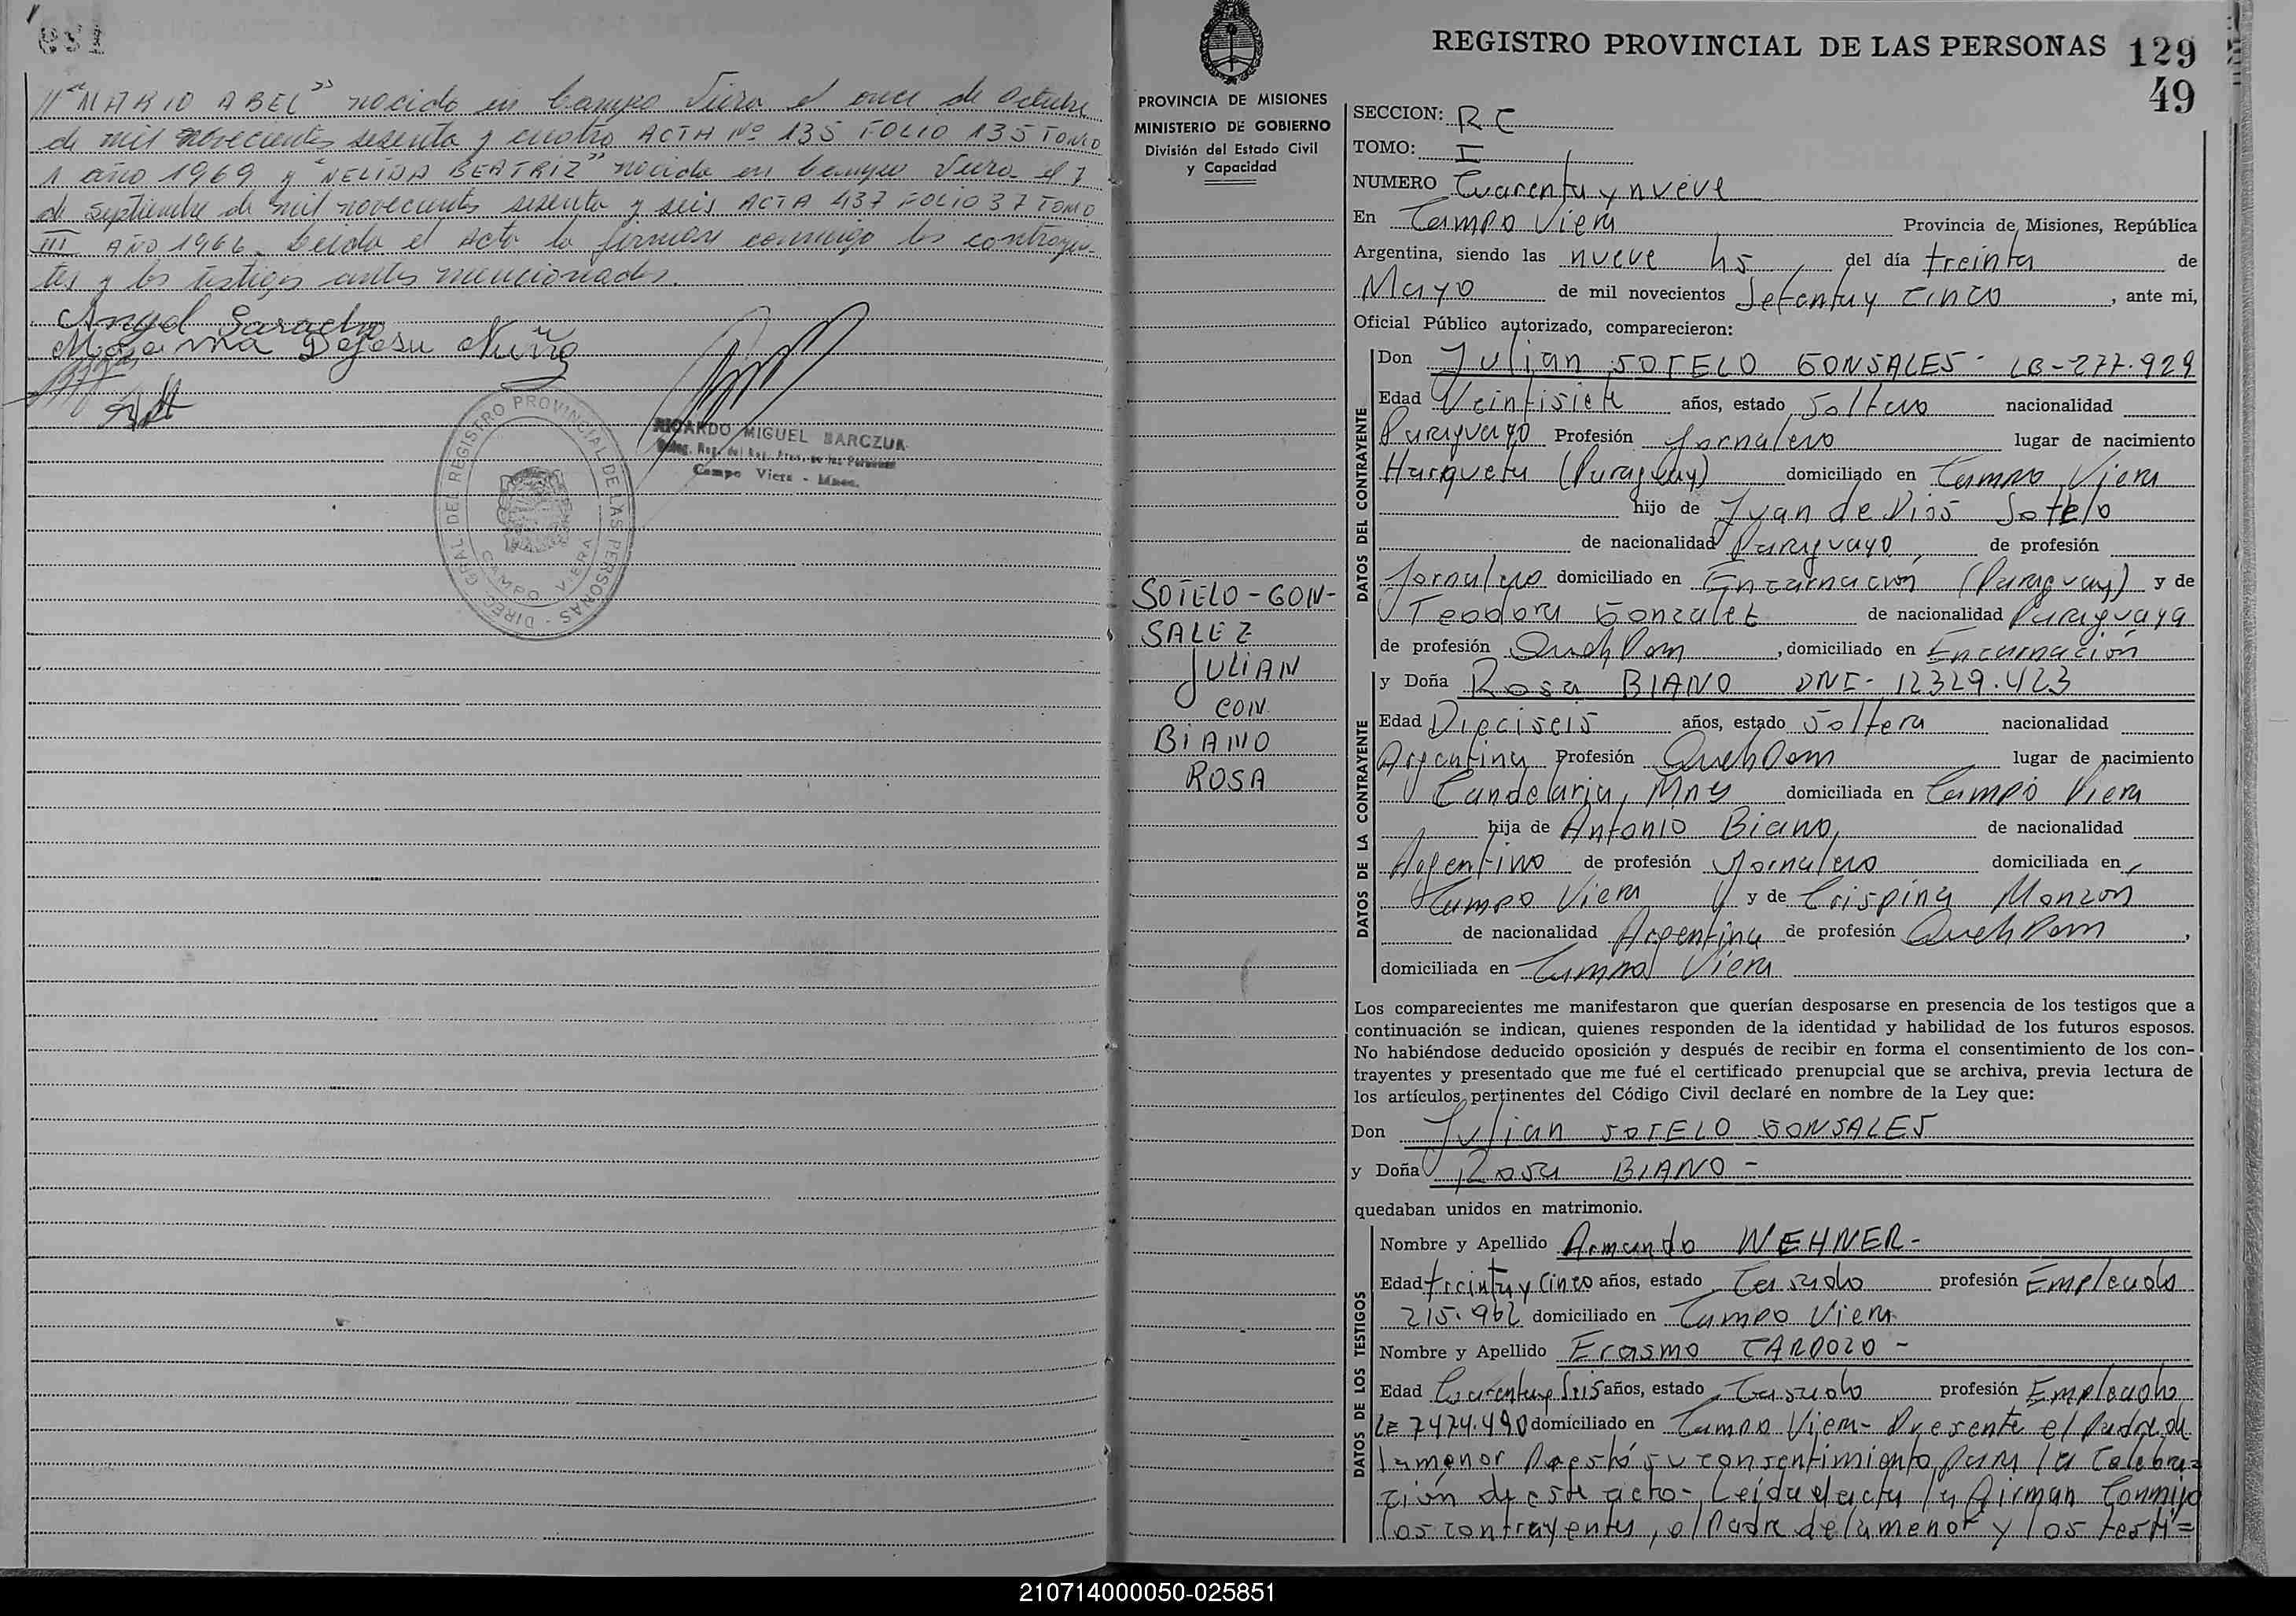 129
"MARIO ABEL" nacido en Campo Viera el once de Octubre
de mil novecientos sesenta y cuatro ACTA Nº 135 FOLIO 135 TOMO
1 año 1969 y "NELIDA BEATRIZ" nacida en Campo Viera el 7
de Septiembre de mil novecientos sesenta y seis ACTA 437 FOLIO 37 TOMO
III AÑO 1966. Leida el Acta la firman conmigo los contrayen-
tes y los testigos antes mencionados.
Angel Saracho
Dejesu Nuñe
DIREC. GRAL DEL REGISTRO PROVINCIAL DE LAS PERSONAS
CAMPO VIERA
RICARDO MIGUEL BARCZUK
Campo Viera - Mnes.
PROVINCIA DE MISIONES
MINISTERIO DE GOBIERNO
División del Estado Civil
y Capacidad
SOTELO-GON-
SALEZ
JULIAN
CON
BIANO
ROSA
REGISTRO PROVINCIAL DE LAS PERSONAS 129
49
SECCION: RC
TOMO: I
NUMERO Cuarenta y nueve
En Campo Viera Provincia de Misiones, República
Argentina, siendo las nueve hs, del día treinta de
Mayo de mil novecientos Setenta y cinco, ante mi,
Oficial Público autorizado, comparecieron:
DATOS DEL CONTRAYENTE
Don Julian SOTELO GONSALES - LB-277.929
Edad Veintisiete años, estado Soltero nacionalidad
Paraguayo Profesión Jornalero lugar de nacimiento
Harqueta (Paraguay) domiciliado en Campo Viera
hijo de Juan de Dios Sotelo
de nacionalidad Paraguayo, de profesión
Jornalero domiciliado en Encarnación (Paraguay) y de
Teodora Gonzalez de nacionalidad Paraguaya
de profesión Queh Dom, domiciliado en Encarnación
DATOS DE LA CONTRAYENTE
y Doña Rosa BIANO DNI- 12329.423
Edad Dieciseis años, estado Soltera nacionalidad
Argentina Profesión Queh Dom lugar de nacimiento
Candelaria, Mnes domiciliada en Campo Viera
hija de Antonio Biano, de nacionalidad
Argentino de profesión Jornalero domiciliada en
Campo Viera y de Crispina Monzon
de nacionalidad Argentina de profesión Queh Dom,
domiciliada en Campo Viera
Los comparecientes me manifestaron que querían desposarse en presencia de los testigos que a
continuación se indican, quienes responden de la identidad y habilidad de los futuros esposos.
No habiéndose deducido oposición y después de recibir en forma el consentimiento de los con-
trayentes y presentado que me fué el certificado prenupcial que se archiva, previa lectura de
los artículos pertinentes del Código Civil declaré en nombre de la Ley que:
Don Julian SOTELO GONSALES
y Doña Rosa BIANO -
quedaban unidos en matrimonio.
DATOS DE LOS TESTIGOS
Nombre y Apellido Armando WEHNER -
Edad treinta y Cinco años, estado Casado profesión Empleado
215.962 domiciliado en Campo Viera
Nombre y Apellido Erasmo CARDOZO -
Edad Cuarenta y Seis años, estado Casado profesión Empleado
LE 7474.490 domiciliado en Campo Viera - Presente el Padre de
la menor Prestó su consentimiento para la Celebra=
ción de este acto - Leída el acta la firman Conmigo
los contrayentes, el Padre de la menor y los testi=
210714000050-025851